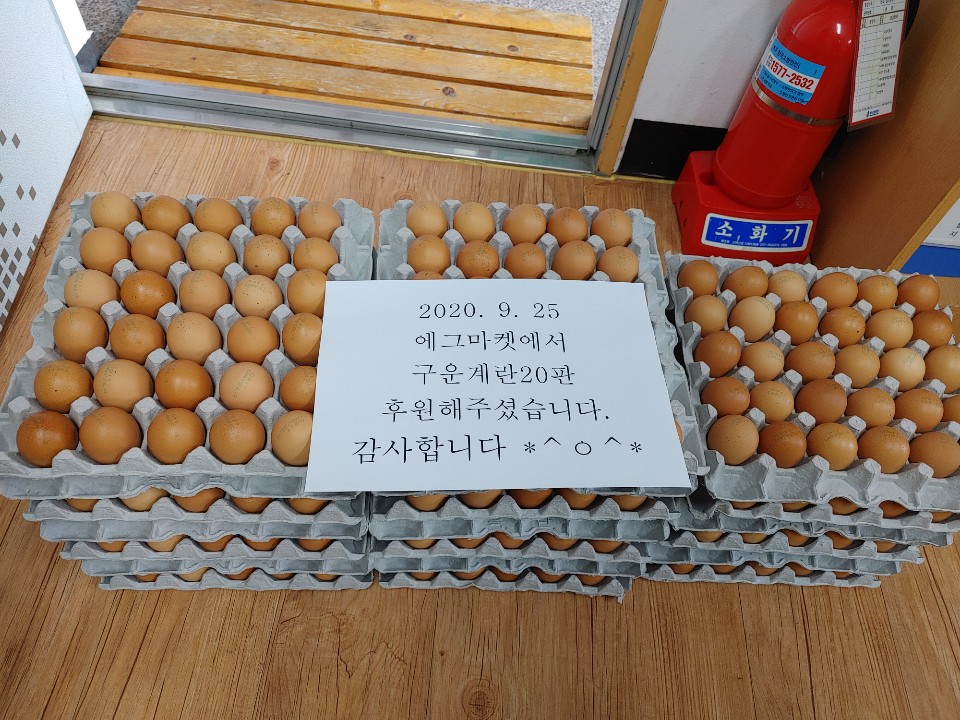 1577-2532
소 화 기
2020. 9. 25
에그마켓에서
구운계란20판
후원해주셨습니다.
감사합니다 *^ㅇ^*